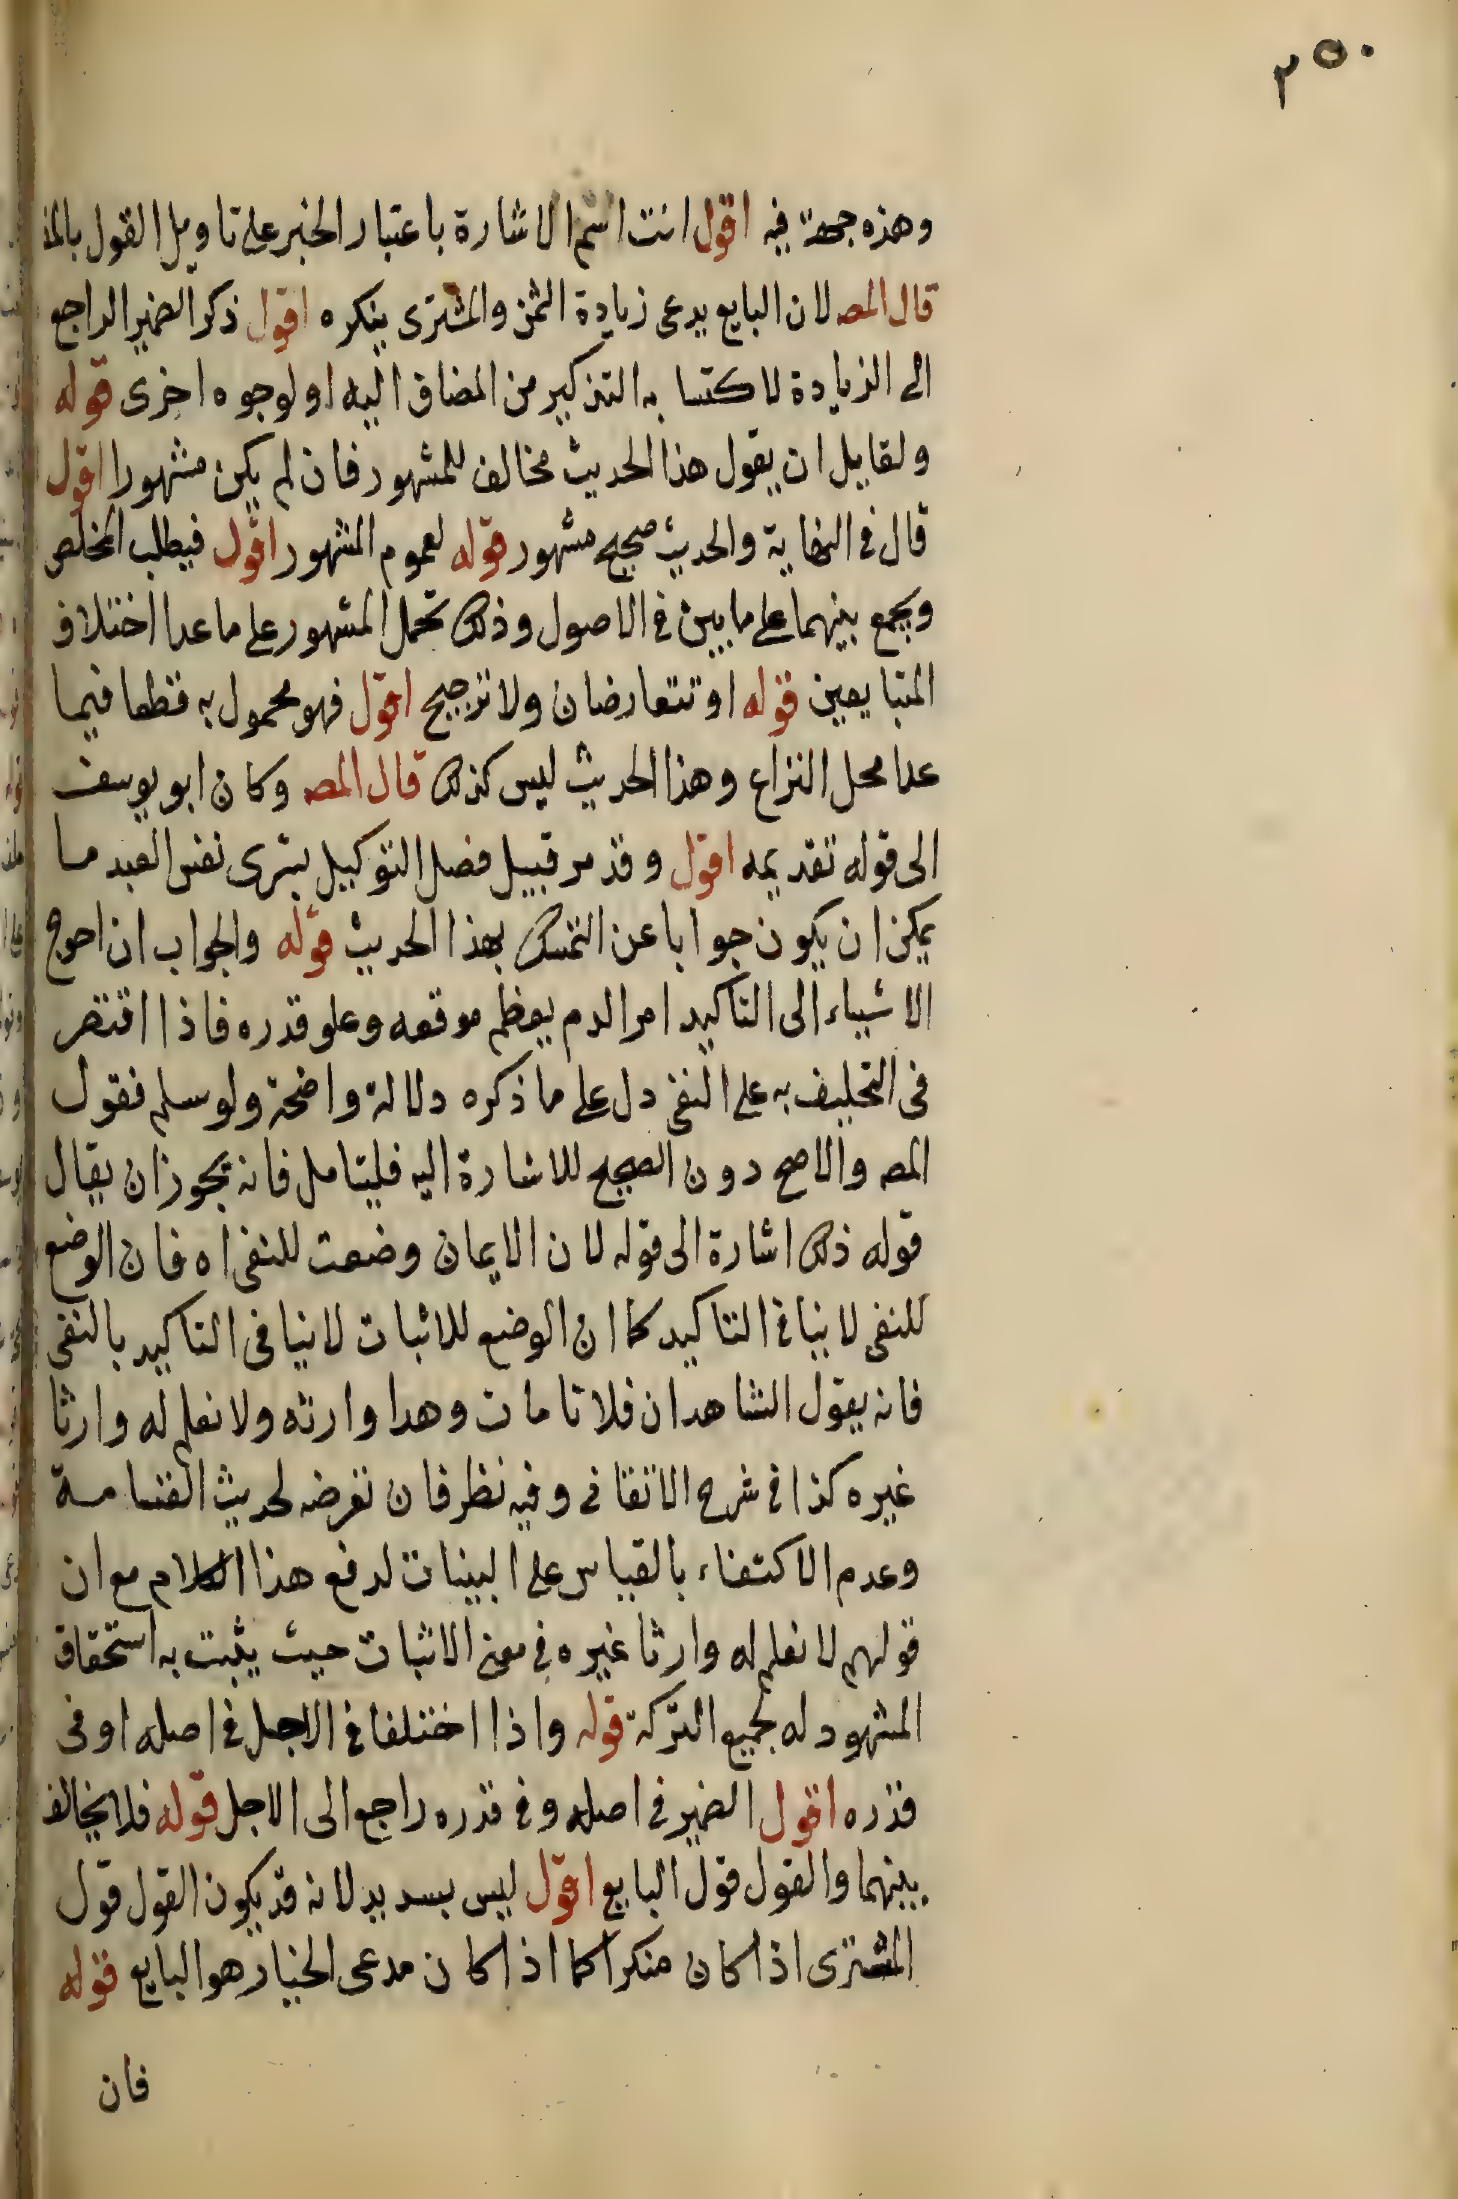 ٢٥٠
وهذه جهة فيه اقول انت اسم الاشارة باعتبار الخبر على تاويل القول
قال المصـ لان البايع يدعى زيادة الثمن والمشترى ينكره اقول ذكر الضمير الراجع
الى الزيادة لاكتسابه التذكير من المضاف اليه او لوجوه اخرى قوله
ولقايل ان يقول هذا الحديث مخالف للمشهور فان لم يكن مشهورا اقول
قال فى النهاية والحديث صحيح مشهور قوله لعموم المشهور اقول فيطلب المخلص
ويجمع بينهما على ما بين فى الاصول وذلك بحمل المشهور على ما عدا اختلاف
المتبايعين قوله او تتعارضان ولا ترجيح اقول فهو محمول به قطعا فيما
عدا محل النزاع وهذا الحديث ليس كذلك قال المصـ وكان ابو يوسف
الى قوله تقديمه اقول وقد مر قبيل فصل التوكيل بشرى نفس العبد ما
يمكن ان يكون جوابا عن التمسك بهذا الحديث قوله والجواب ان احوج
الاشياء الى التاكيد امر الدم بعظم موقعه وعلو قدره فاذا اقتصر
فى التحليف به على النفى دل على ما ذكره دلالة واضحة ولو سلم فقول
المصـ والاصح دون الصحيح للاشارة اليه فليتامل فانه يجوز ان يقال
قوله ذلك اشارة الى قوله لان الايمان وضعت للنفى اه فان الوضع
للنفى لا ينافى التاكيد كما ان الوضع للاثبات لا ينافى التاكيد بالنفى
فانه يقول الشاهد ان فلانا مات وهدا وارثه ولا نعلم له وارثا
غيره كذا فى شرح الاتقانى وفيه نظر فان تعرضه لحديث القسامة
وعدم الاكتفاء بالقياس على البينات لدفع هذا الكلام مع ان
قولهم لا نعلم له وارثا غيره فى معنى الاثبات حيث يثبت به استحقاق
المشهود له بجميع التركة قوله واذا اختلفا فى الاجل فى اصله او فى
قدره اقول الضمير فى اصله وفى قدره راجع الى الاجل قوله فلا يخالف
بينهما والقول قول البايع اقول ليس بسديد لانه قد يكون القول قول
المشترى اذا كان منكرا كما اذا كان مدعى الخيار هو البايع قوله
فان